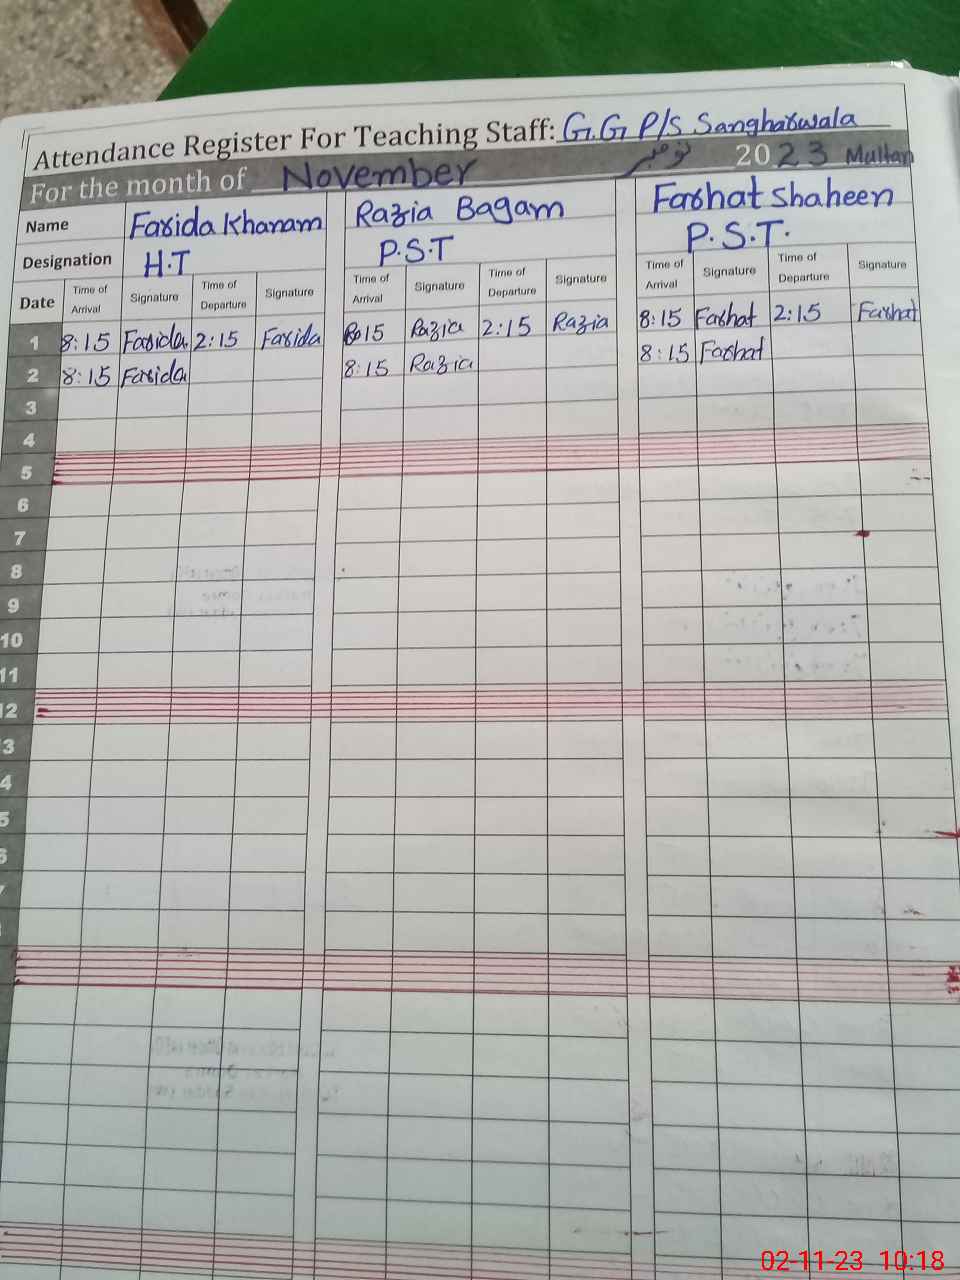 Attendance Register For Teaching Staff: G.G P/S Sangharwala
For the month of November نومبر 2023 Multan
Name Farida Khanam Razia Bagam Farhat Shaheen
Designation H.T P.S.T P.S.T.
Date Time of Arrival Signature Time of Departure Signature Time of Arrival Signature Time of Departure Signature Time of Arrival Signature Time of Departure Signature
1 8:15 Farida 2:15 Farida 15 Razia 2:15 Razia 8:15 Farhat 2:15 Farhat
2 8:15 Farida 8:15 Razia 8:15 Farhat
3
4
5
6
7
8
9
10
11
12
3
4
5
02-11-23 10:18